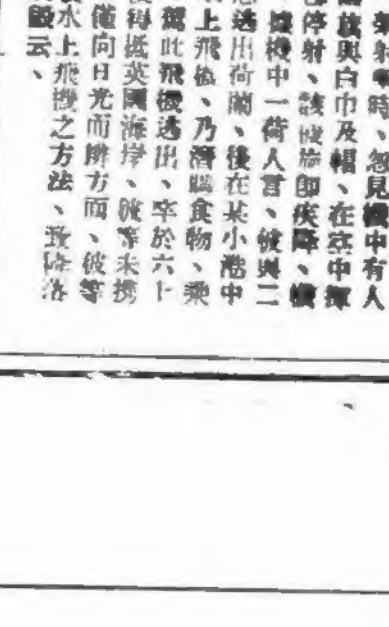 射時、忽見機中有人
旗與白巾及帽、在窓中揮
停射、該機旋即疾降、機
據機中一荷人言、彼與二
逃出荷蘭、後在某小港中
上飛機、乃潛購食物、乘
此飛機逃出、卒於六十
得抵英國海岸、彼等未携
僅向日光而辨方面、彼等
水上飛機之方法、降落
云、